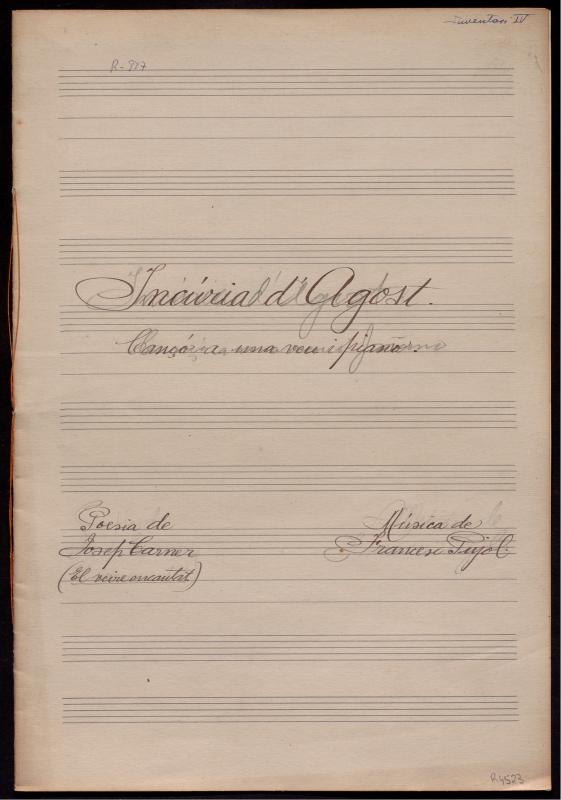 Inventari IV
R-927
Incúria d'Agost.
Cançó a una veu i piano.
Poesia de
Josep Carner
(El veire encantat)
Música de
Francesc Pujol.
R 4523